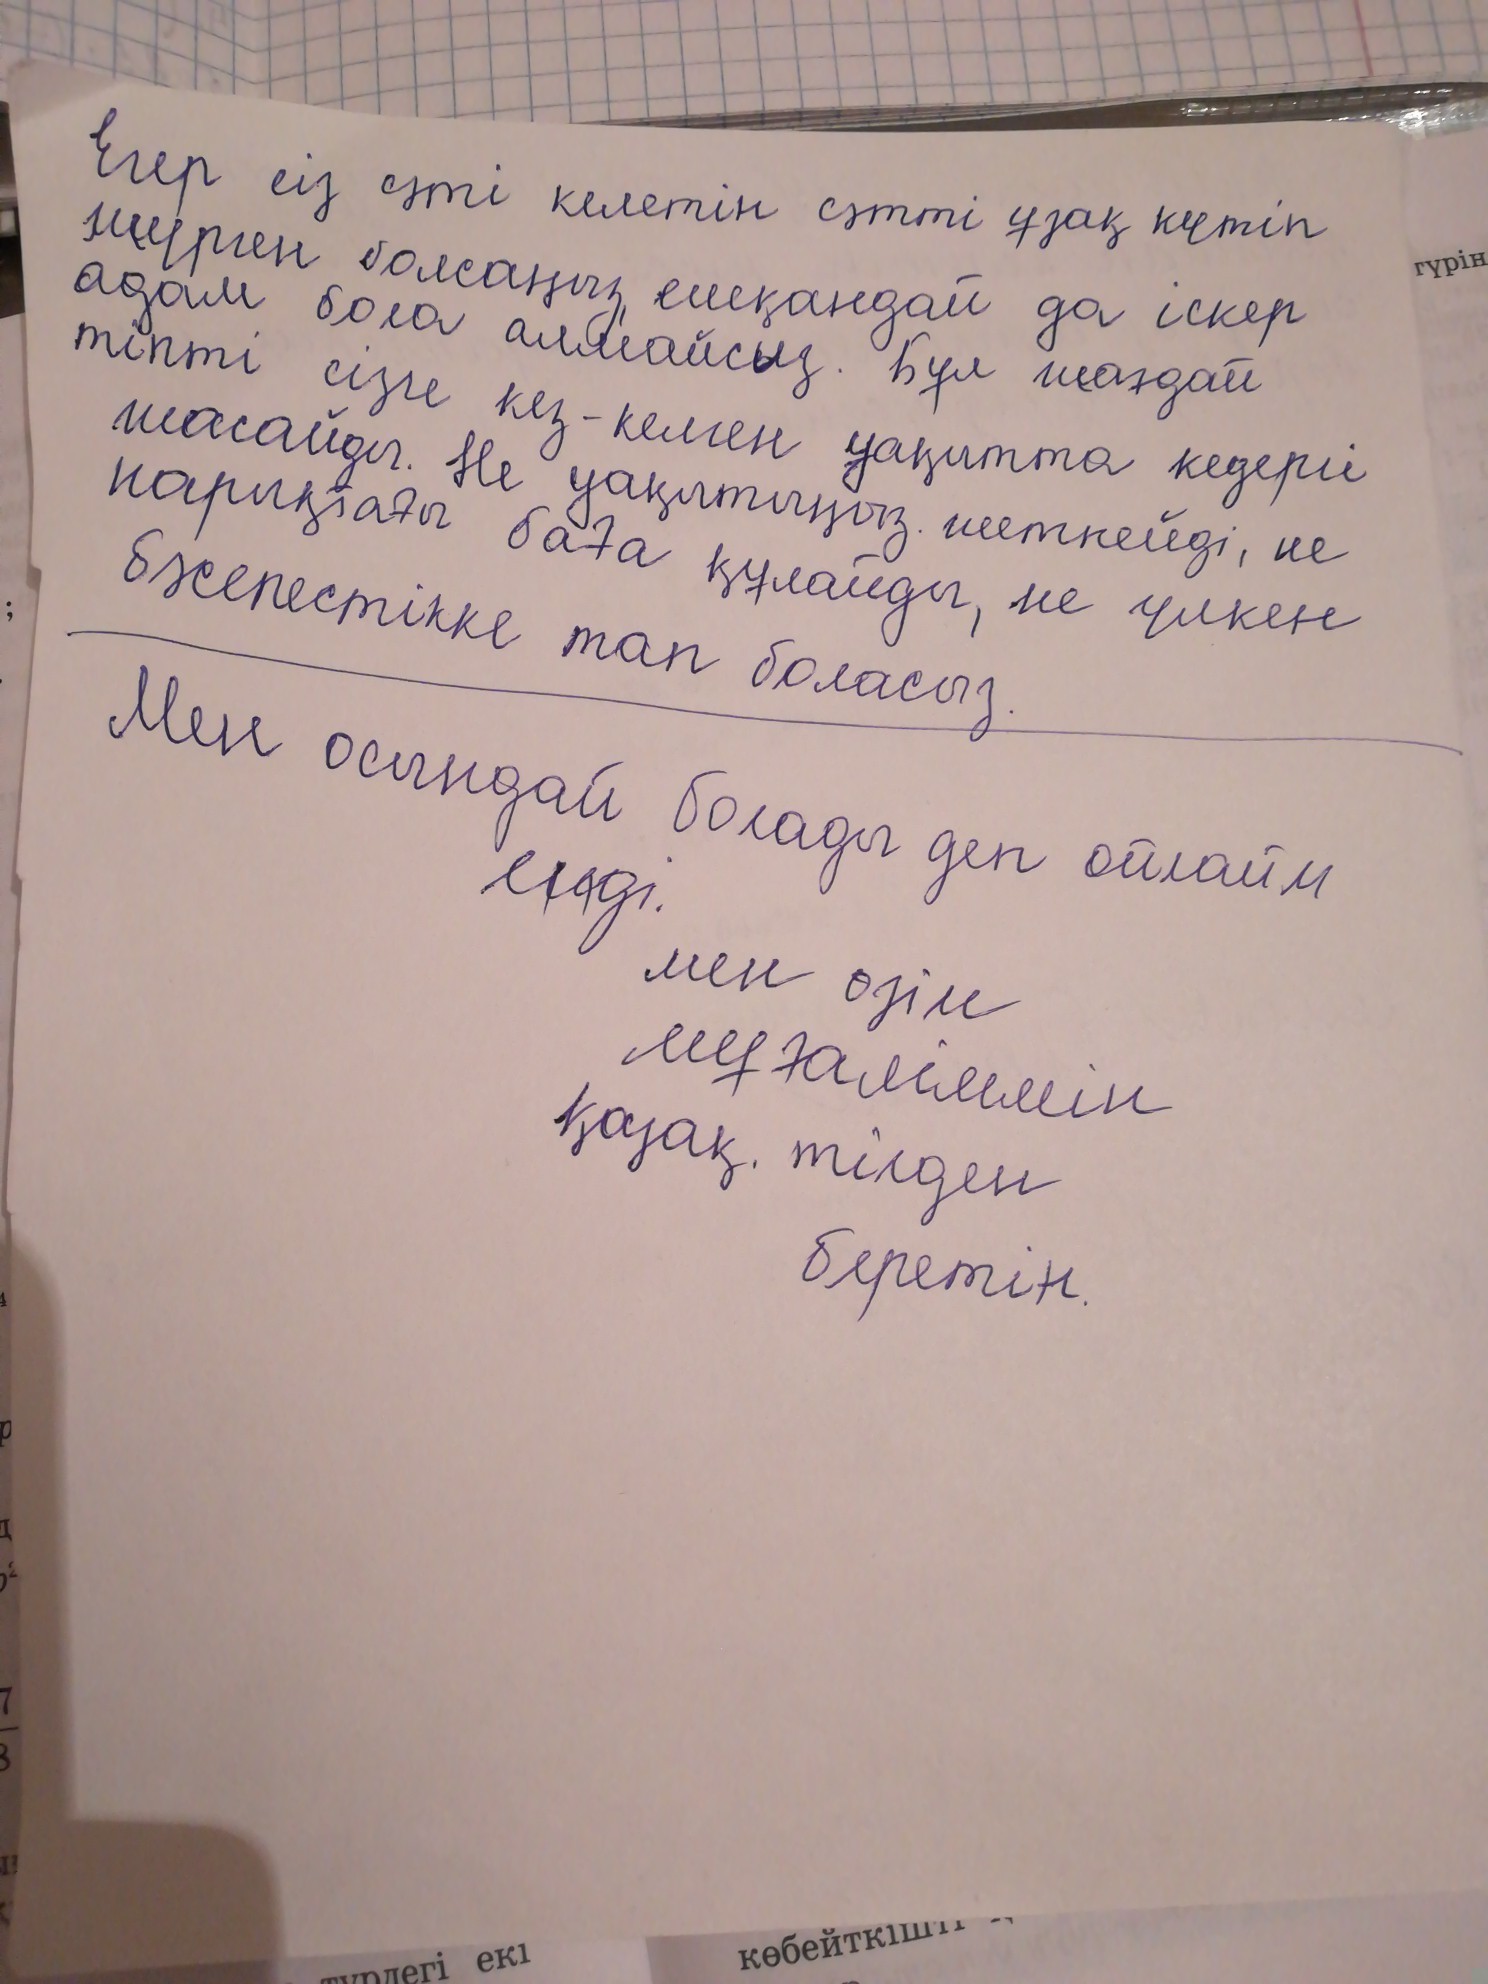 Егер сіз сәті келетін сәтті ұзақ күтіп
жүрген болсаңыз, ешқандай да іскер
адам бола алмайсыз. Бұл жағдай
тіпті сізге кез-келген уақытта кедергі
жасайды. Не уақытыңыз жетпейді, не
нарықтағы баға құлайды, не үлкен
бәсепестікке тап боласыз.
Мен осындай болады деп ойлайм
енді.
мен өзім
мұғаліммін
қазақ. тілден
беретін.
түрін
;
7
8
түрдегі екі
көбейткішті